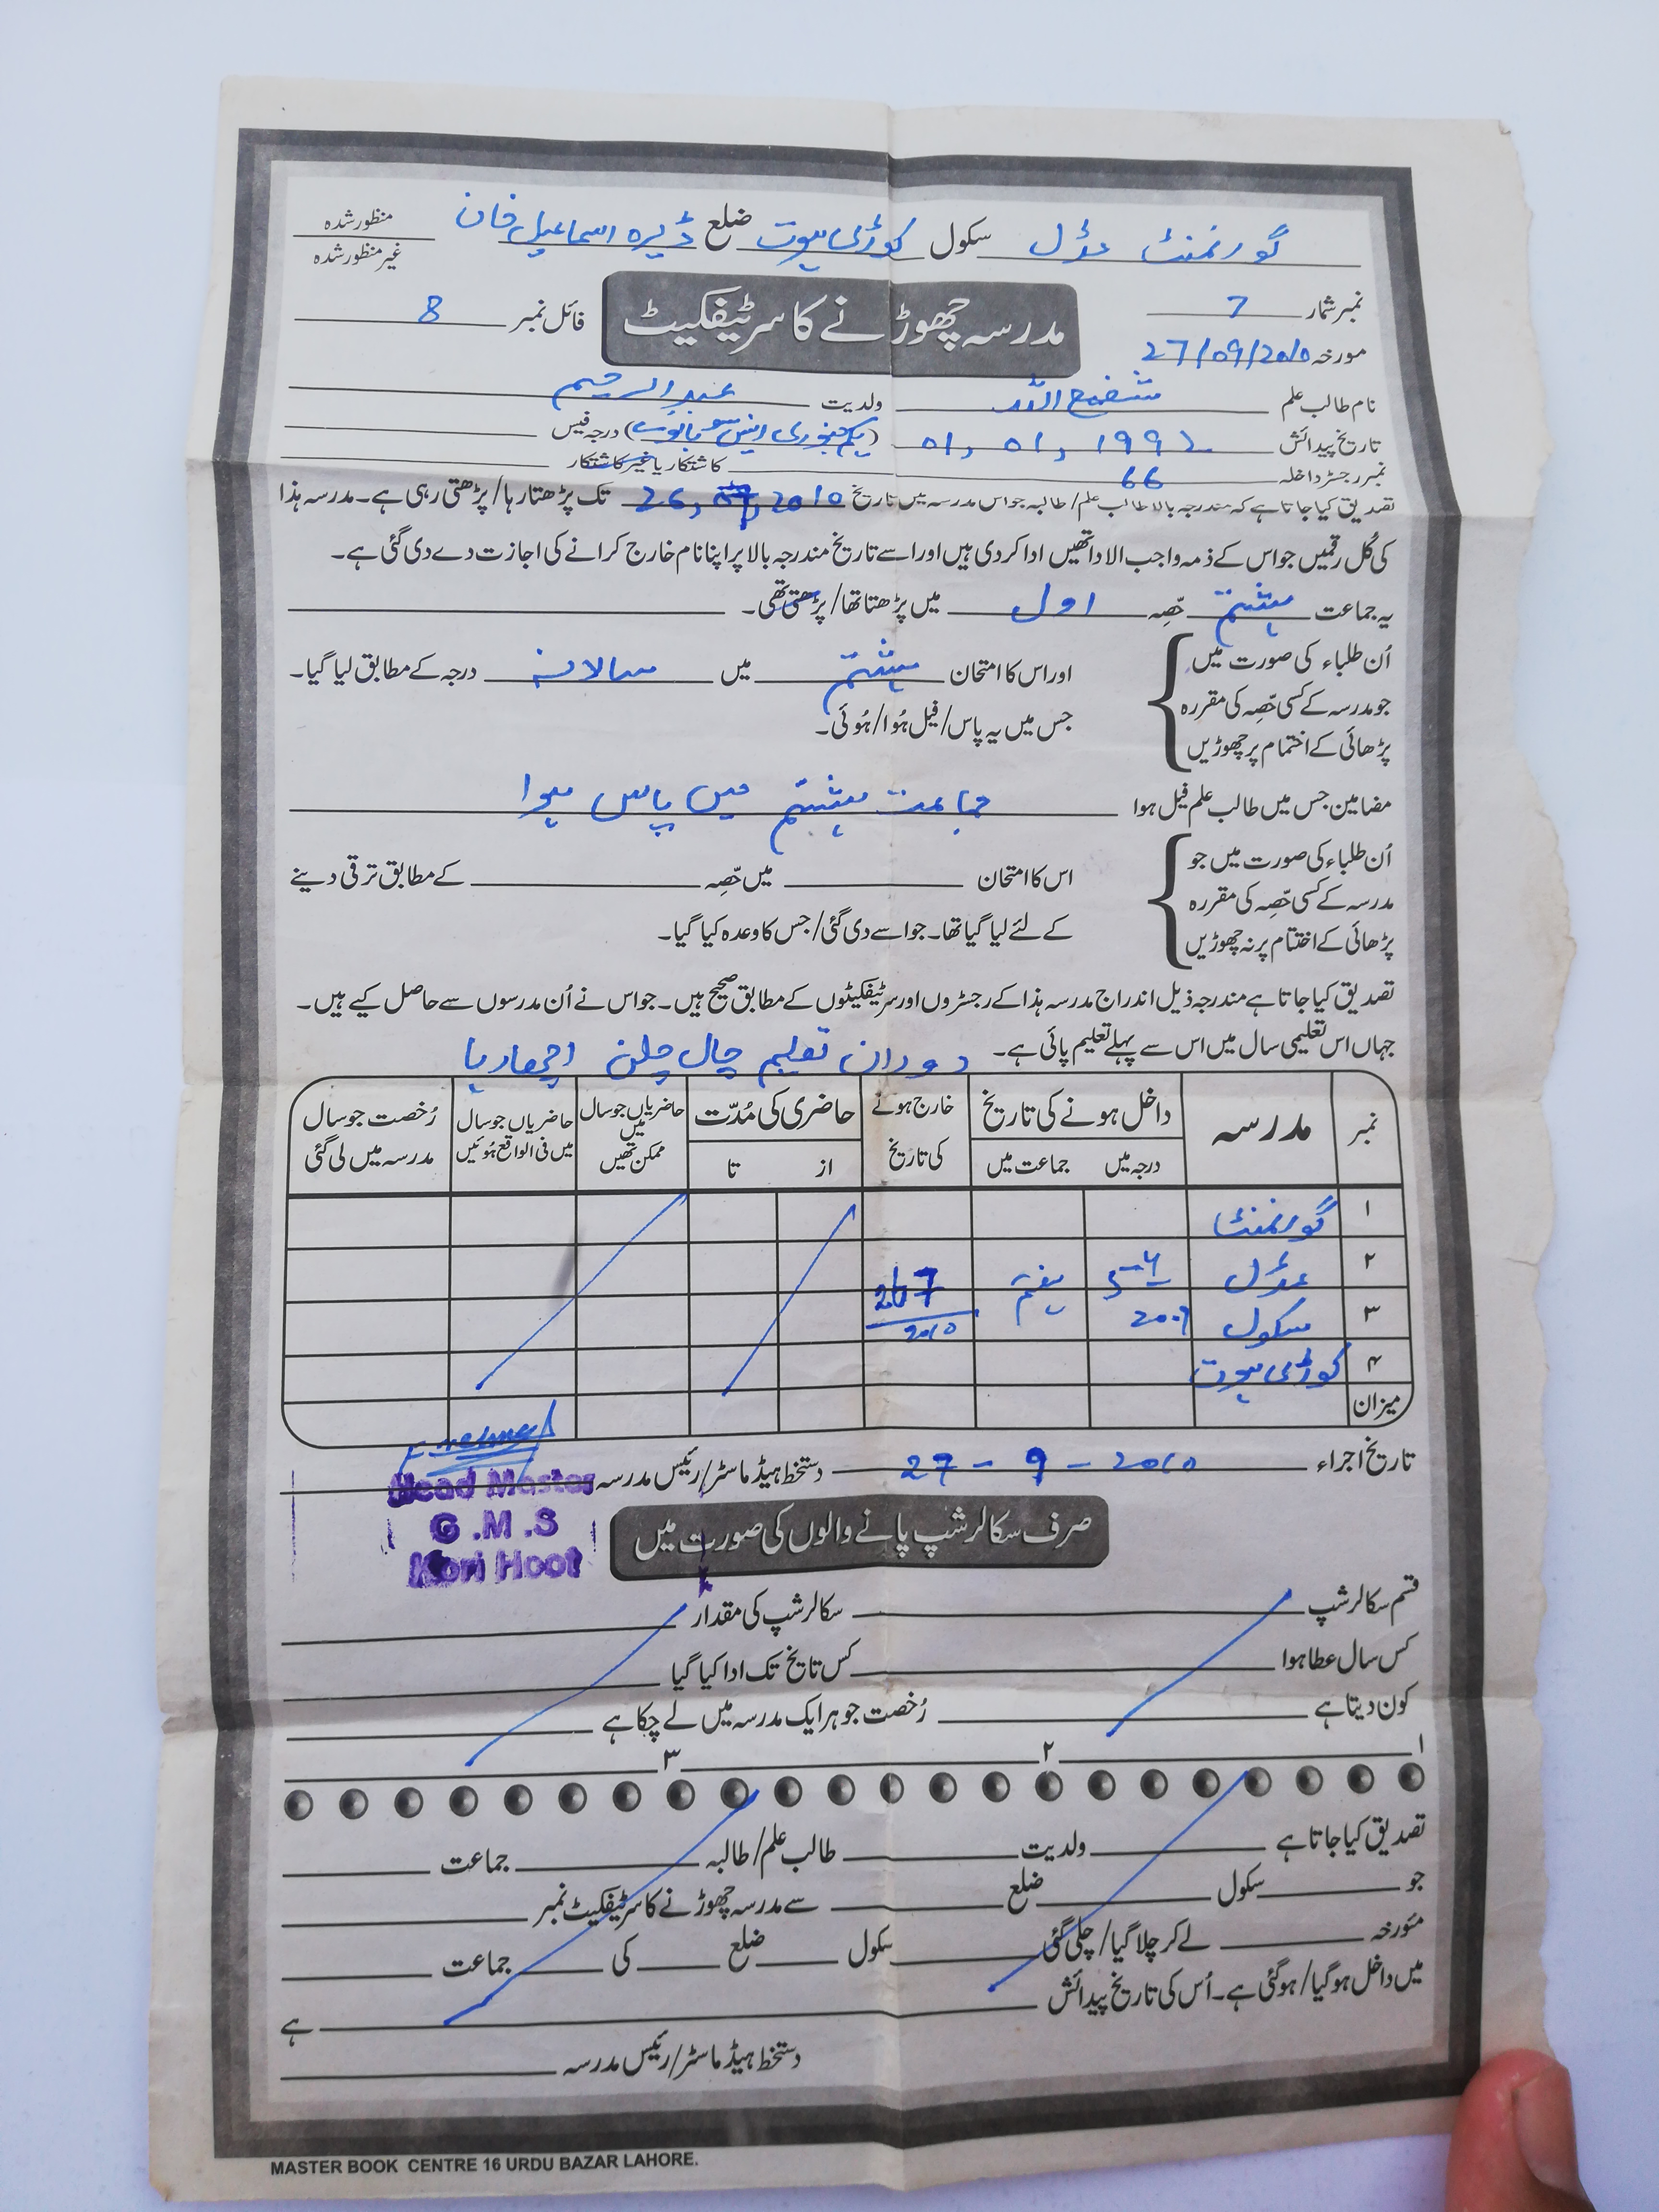 گورنمنٹ مڈل سکول کوڑی ہوت ضلع ڈیرہ اسماعیل خان منظور شدہ
غیر منظور شدہ
نمبر شمار 7 مدرسہ چھوڑنے کا سرٹیفکیٹ فائل نمبر 8
مورخہ 27/09/2010
نام طالب علم شفیع اللہ ولدیت عبدالرحیم
تاریخ پیدائش 01, 01, 1992 (یکم جنوری انیس سو بانوے) درجہ فیس
نمبر رجسٹر داخلہ 66 کاشتکار یا غیر کاشتکار
تصدیق کیا جاتا ہے کہ مندرجہ بالا طالب علم/طالبہ جو اس مدرسہ میں تاریخ 26, 2010 تک پڑھتا رہا/پڑھتی رہی ہے۔ مدرسہ ہذا
کی کُل رقمیں جو اس کے ذمہ واجب الادا تھیں ادا کر دی ہیں اور اسے تاریخ مندرجہ بالا پر اپنا نام خارج کرانے کی اجازت دے دی گئی ہے۔
یہ جماعت ہشتم حصّہ اول میں پڑھتا تھا/پڑھتی تھی۔
اُن طلباء کی صورت میں
جو مدرسہ کے کسی حصّہ کی مقررہ
پڑھائی کے اختمام پر چھوڑیں
اور اس کا امتحان ہشتم میں سالانہ درجہ کے مطابق لیا گیا۔
جس میں یہ پاس/فیل ہُوا/ہُوئی۔
مضامین جس میں طالب علم فیل ہوا جماعت ہشتم میں پاس ہوا
اُن طلباء کی صورت میں جو
مدرسہ کے کسی حصّہ کی مقررہ
پڑھائی کے اختتام پر نہ چھوڑیں
اس کا امتحان میں حصّہ کے مطابق ترقی دینے
کے لئے لیا گیا تھا۔ جو اسے دی گئی/جس کا وعدہ کیا گیا۔
تصدیق کیا جاتا ہے مندرجہ ذیل اندراج مدرسہ ہذا کے رجسٹروں اور سرٹیفکیٹوں کے مطابق صحیح ہیں۔ جو اس نے اُن مدرسوں سے حاصل کیے ہیں۔
جہاں اس تعلیمی سال میں اس سے پہلے تعلیم پائی ہے۔ دوران تعلیم چال چلن اچھا رہا
نمبر مدرسہ داخل ہونے کی تاریخ خارج ہونے کی تاریخ حاضری کی مُدّت حاضریاں جو سال میں ممکن تھیں حاضریاں جو سال میں فی الواقع ہُوئیں رُخصت جو سال مدرسہ میں لی گئی
درجہ میں جماعت میں از تا
۱ گورنمنٹ
۲ مڈل ہفتم
۳ سکول 2009 2010
۴ کوڑی ہوت
میزان
تاریخ اجراء 27 - 9 - 2010 دستخط ہیڈ ماسٹر/رئیس مدرسہ
Head Master
G.M.S
Kori Hoot
صرف سکالرشپ پانے والوں کی صورت میں
قسم سکالرشپ سکالرشپ کی مقدار
کس سال عطا ہوا کس تاریخ تک ادا کیا گیا
کون دیتا ہے رُخصت جو ہر ایک مدرسہ میں لے چکا ہے
۱ ۲ ۳
تصدیق کیا جاتا ہے ولدیت طالب علم/طالبہ جماعت
جو سکول ضلع سے مدرسہ چھوڑنے کا سرٹیفکیٹ نمبر
مئورخہ لے کر چلا گیا/چلی گئی سکول ضلع کی جماعت
میں داخل ہو گیا/ہو گئی ہے۔ اُس کی تاریخ پیدائش ہے
دستخط ہیڈ ماسٹر/رئیس مدرسہ
MASTER BOOK CENTRE 16 URDU BAZAR LAHORE.